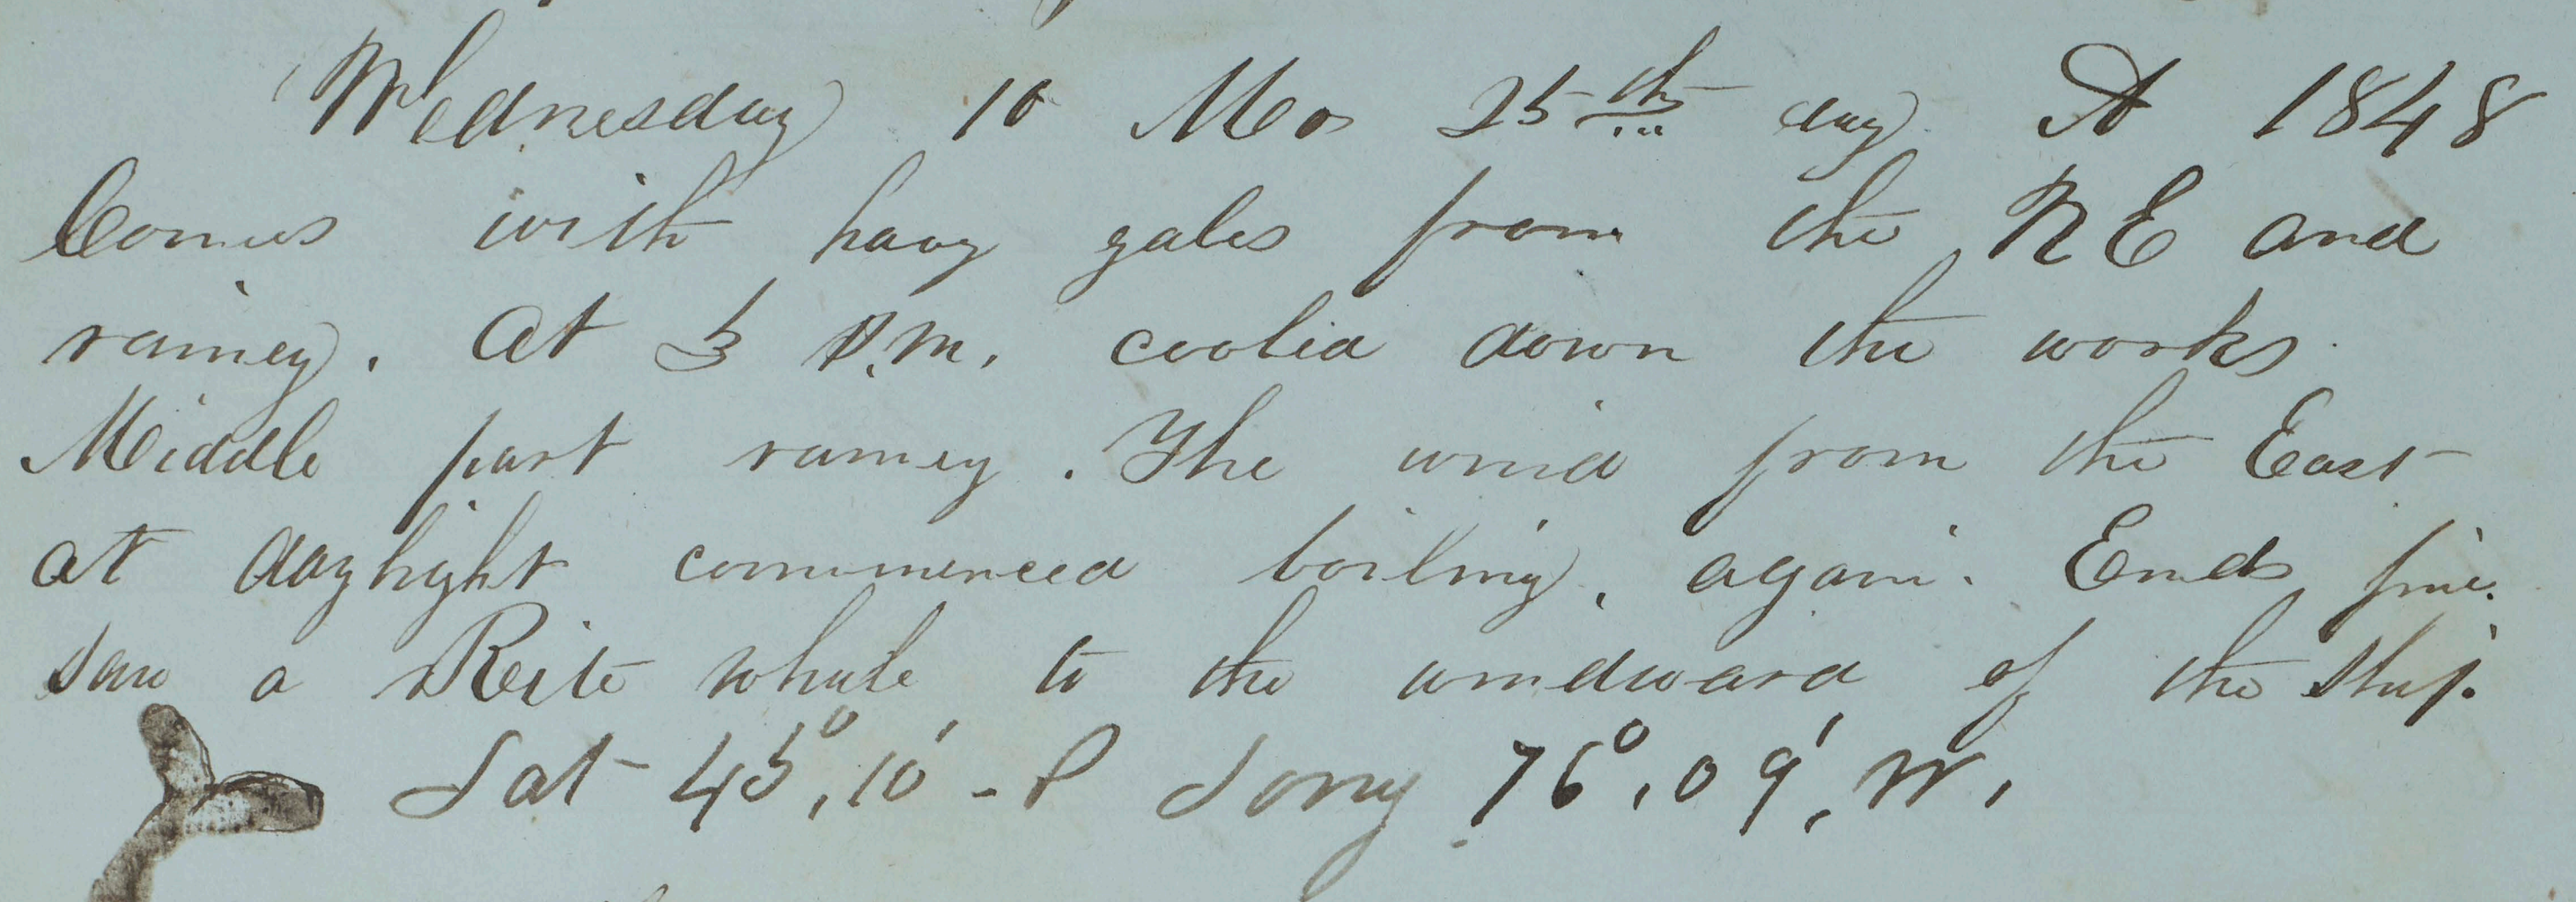 Wednesday 10 Mo 25th day A 1848
Comes with havy gales from the NE and
rainey. At 5 P.M. coolid down the works
Middle part rainey. The wind from the East
at daylight commenced boiling, again. Ends fine.
saw a Reite whale to the windward of the Ship.
Lat 45°, 10' - S Long 76°, 09', W.